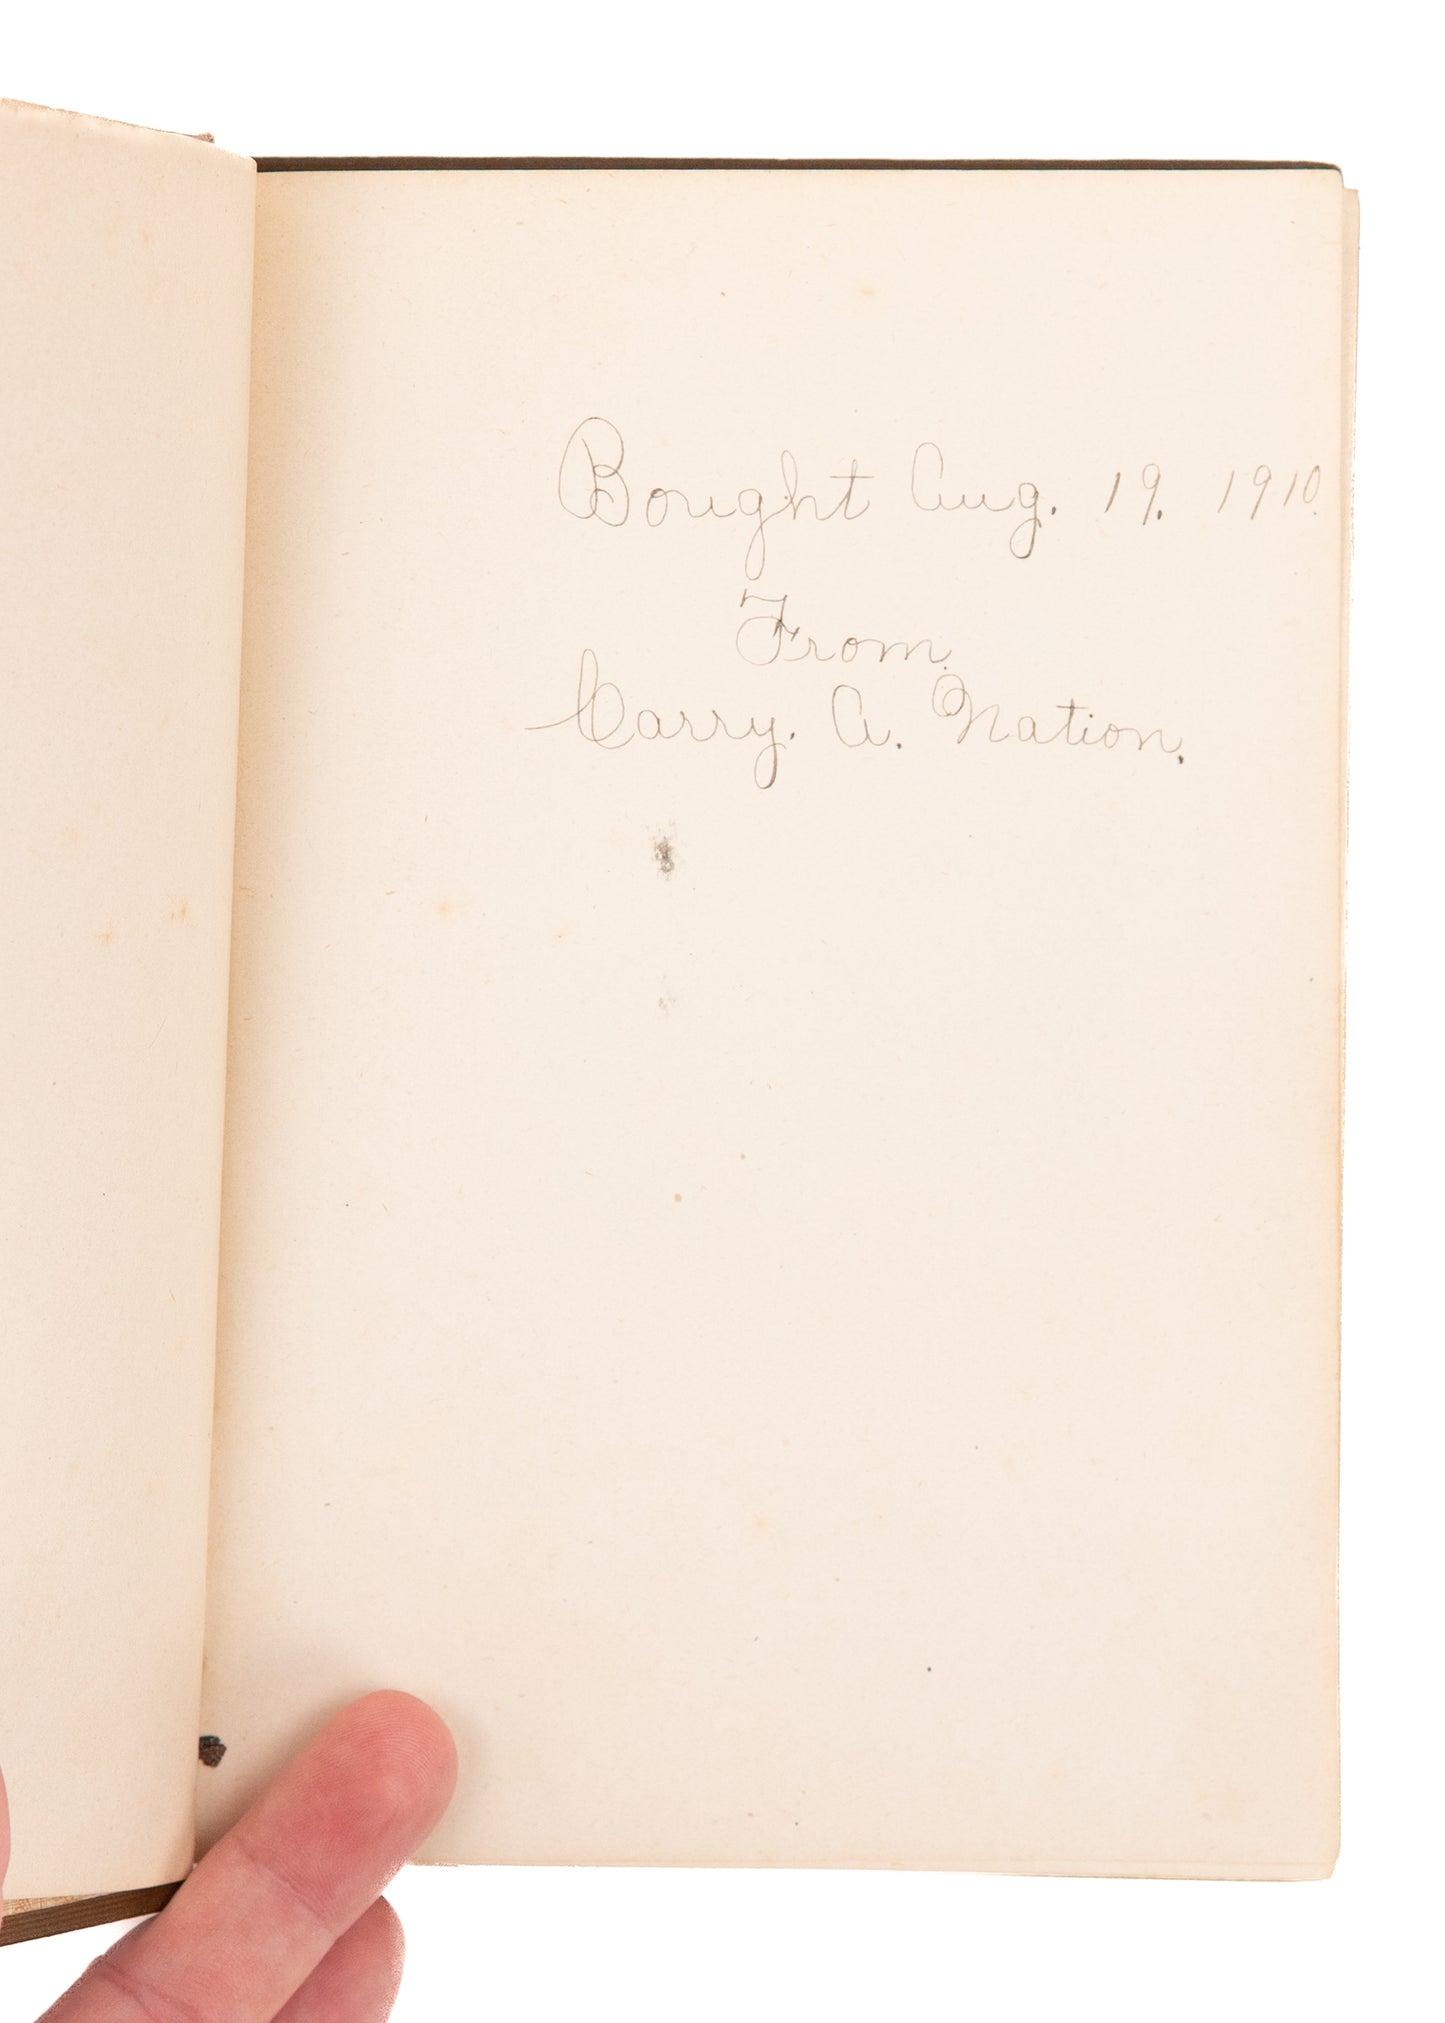 Bought Aug. 19. 1910.
From.
Carry. A. Nation.